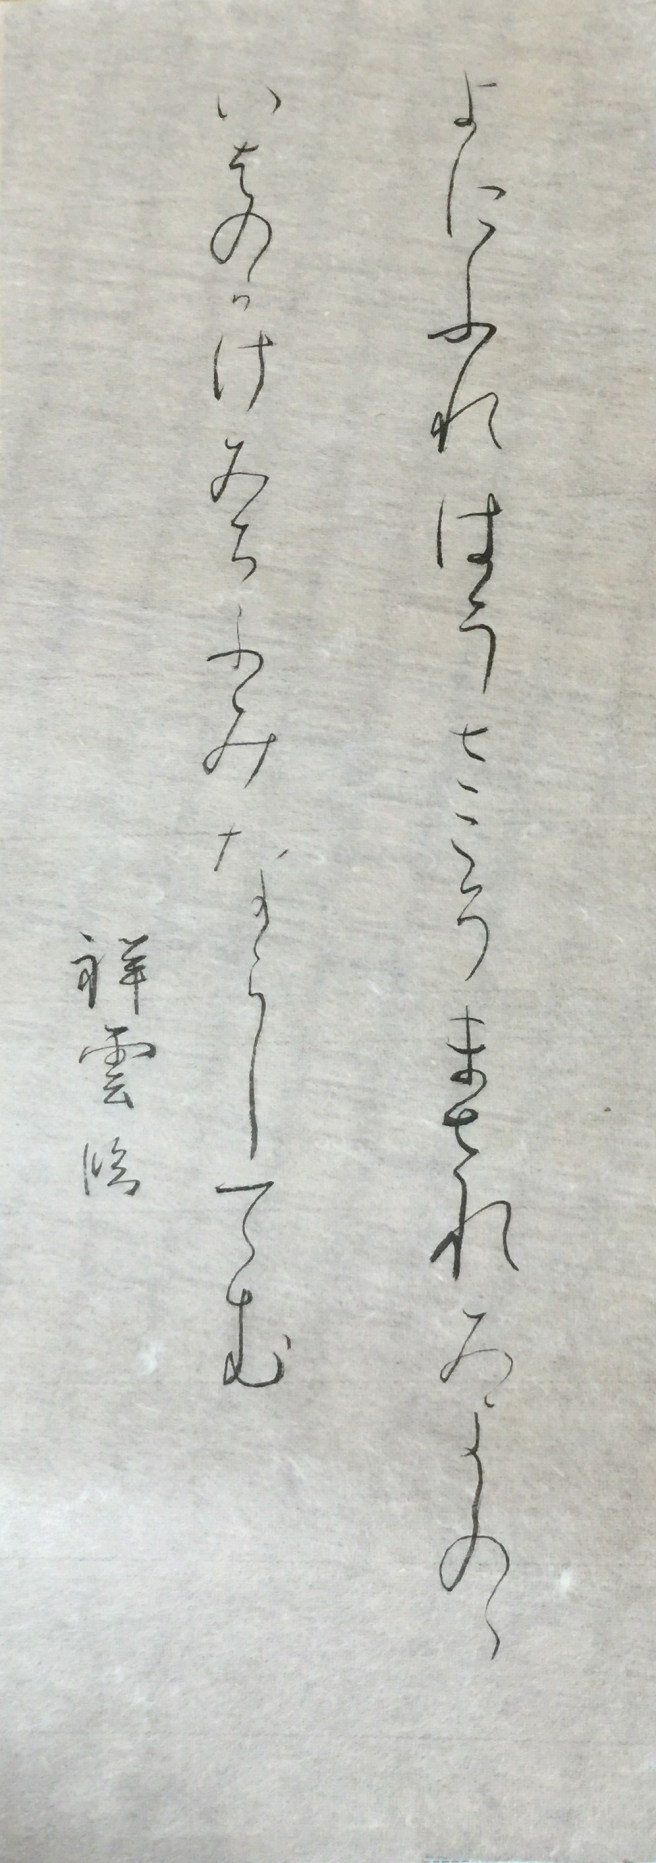 よにふればうさこそまされみよしのゝ
いはのかけみちふみならしてむ
祥雲臨